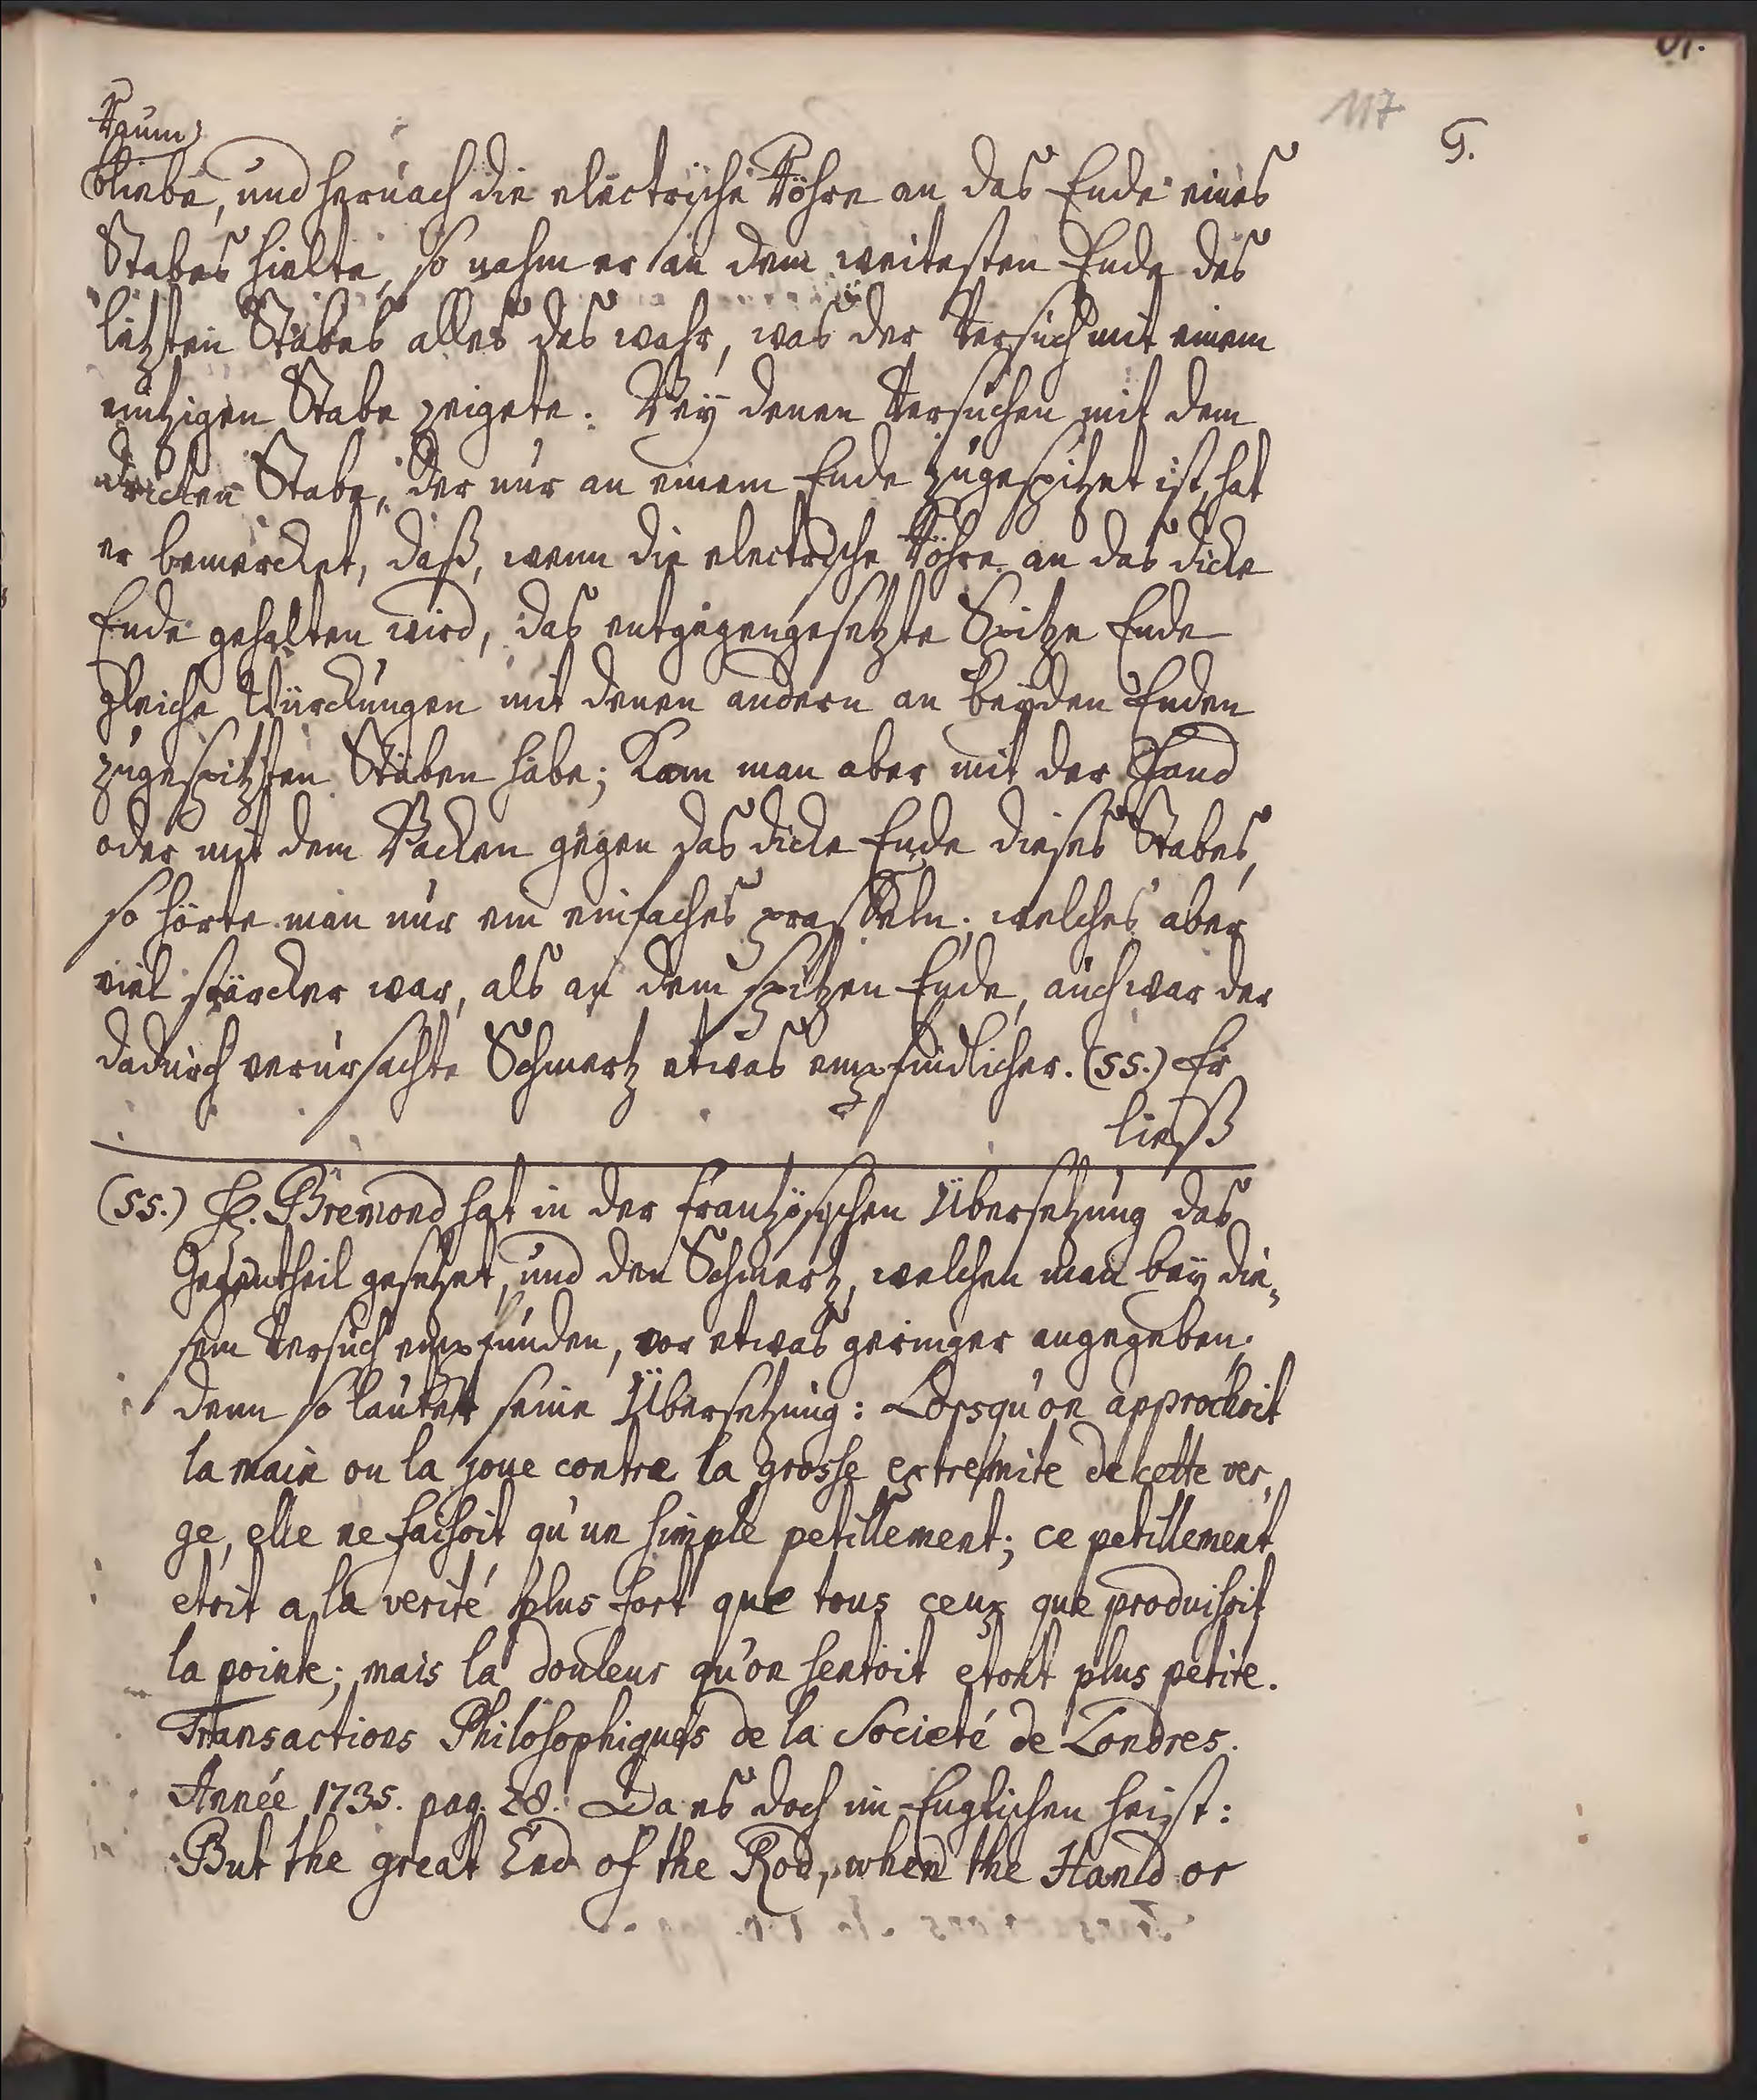 117
G.
Raum
bliebe, und hernach die electrische Röhre an das Ende eines
Stabes hielte, so nahm er an dem weitesten Ende des
letzten Stabes alles das wahr, was der Versuch mit einem
eintzigen Stabe zeigete. Bey denen Versuchen mit dem
dricten Stabe, der nur an einem Ende zugespitzet ist, hat
er bemercket, daß, wenn die electrische Röhre an das dicke
Ende gehalten wird, das entgegengesetzte Spitze Ende
gleiche Würckungen mit denen andern an beyden Enden
zugespitzten Stäben habe; Kam man aber mit der Hand
oder mit dem Backen gegen das dicke Ende dieses Stabes,
so hörte man nur ein einfaches prasseln; welches aber
viel stärcker war, als an dem spitzen Ende, auch war der
dadurch verursachte Schmertz etwas empfindlicher. (ss.) Er
ließ
(ss.) H. Bremond hat in der frantzösischen Übersetzung das
Gegentheil gesetzet, und den Schmertz, welchen man bey die¬
sem Versuch empfunden, vor etwas geringer angegeben;
denn so lautet seine Übersetzung: Lorsqu'on approchoit
la main ou la joue contre la grosse extremite de cette ver¬
ge, elle ne faisoit qu'un simple petillement; ce petillement
etoit a la verité plus fort que tous ceux que produisoit
la pointe; mais la douleur qu'on sentoit etoit plus petite.
Transactions Philosophiques de la Societé de Londres.
Année 1735. pag. 28. Da es doch im Englischen heist:
But the great End of the Rod, when the Hand or